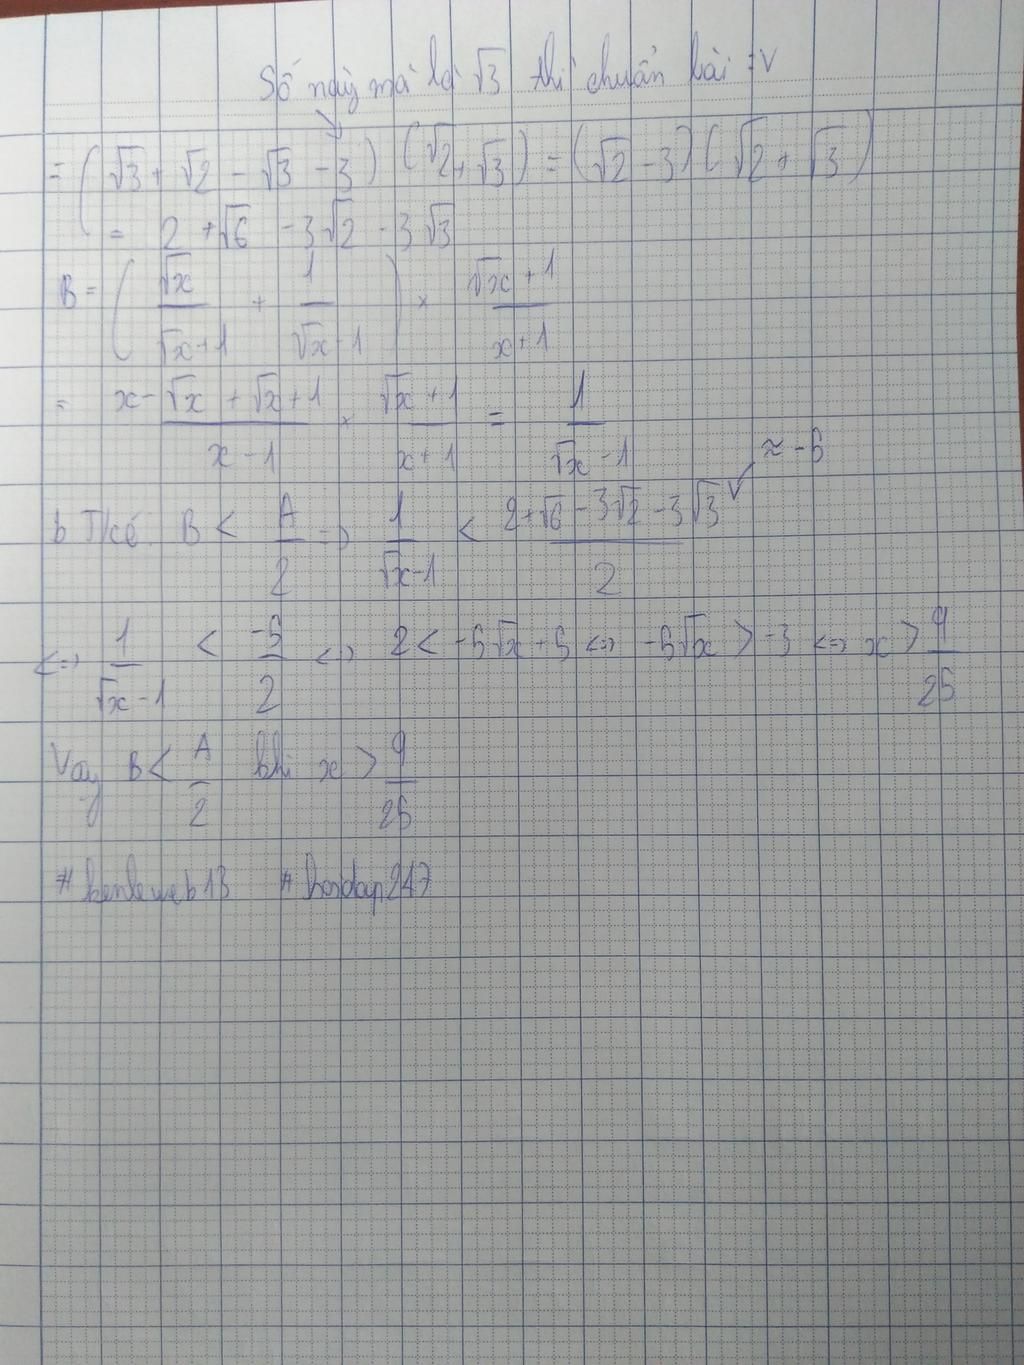 Số này mà là √3 thì chuẩn bài :V
= (√3 + √2 - √3 - 3) (√2 + √3) = (√2 - 3) (√2 + √3)
= 2 + √6 - 3√2 - 3√3
B = (√x/(√x+1) + 1/(√x-1)) × (√x+1)/(x+1)
= (x - √x + √x + 1)/(x-1) × (√x+1)/(x+1) = 1/(√x-1)
≈ -5
b T/có. B < A/2 => 1/(√x-1) < (2+√6-3√2-3√3)/2
<=> 1/(√x-1) < -5/2 <=> 2 < -5√x + 5 <=> -5√x > -3 <=> x > 9/25
Vậy B < A/2 khi x > 9/25